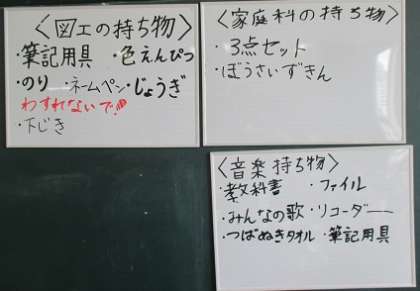 〈図工の持ち物〉
・筆記用具 ・色えんぴつ
・のり ・ネームペン ・じょうぎ
わすれないで!!
・下じき
〈家庭科の持ち物〉
・3点セット
・ぼうさいずきん
〈音楽持ち物〉
・教科書 ・ファイル
・みんなの歌 ・リコーダー
・つばぬきタオル ・筆記用具